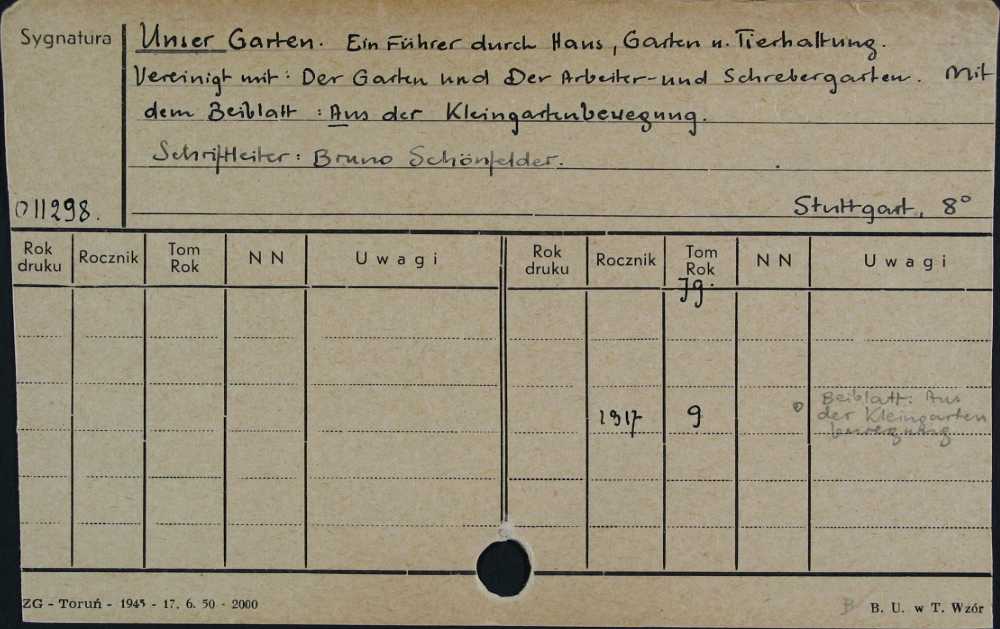 Sygnatura
Unser Garten. Ein Führer durch Haus, Garten u. Tierhaltung.
Vereinigt mit: Der Garten und Der Arbeiter- und Schrebergarten. Mit
dem Beiblatt: Aus der Kleingartenbewegung.
Schriftleiter: Bruno Schönfelder.
011298.
Stuttgart, 8°
Rok druku Rocznik Tom Rok N N Uwagi Rok druku Rocznik Tom Rok N N Uwagi
Jg.
Beiblatt: Aus
1917 9 o der Kleingarten
bewegung
ZG - Toruń - 1945 - 17. 6. 50 - 2000
B B. U. w T. Wzór